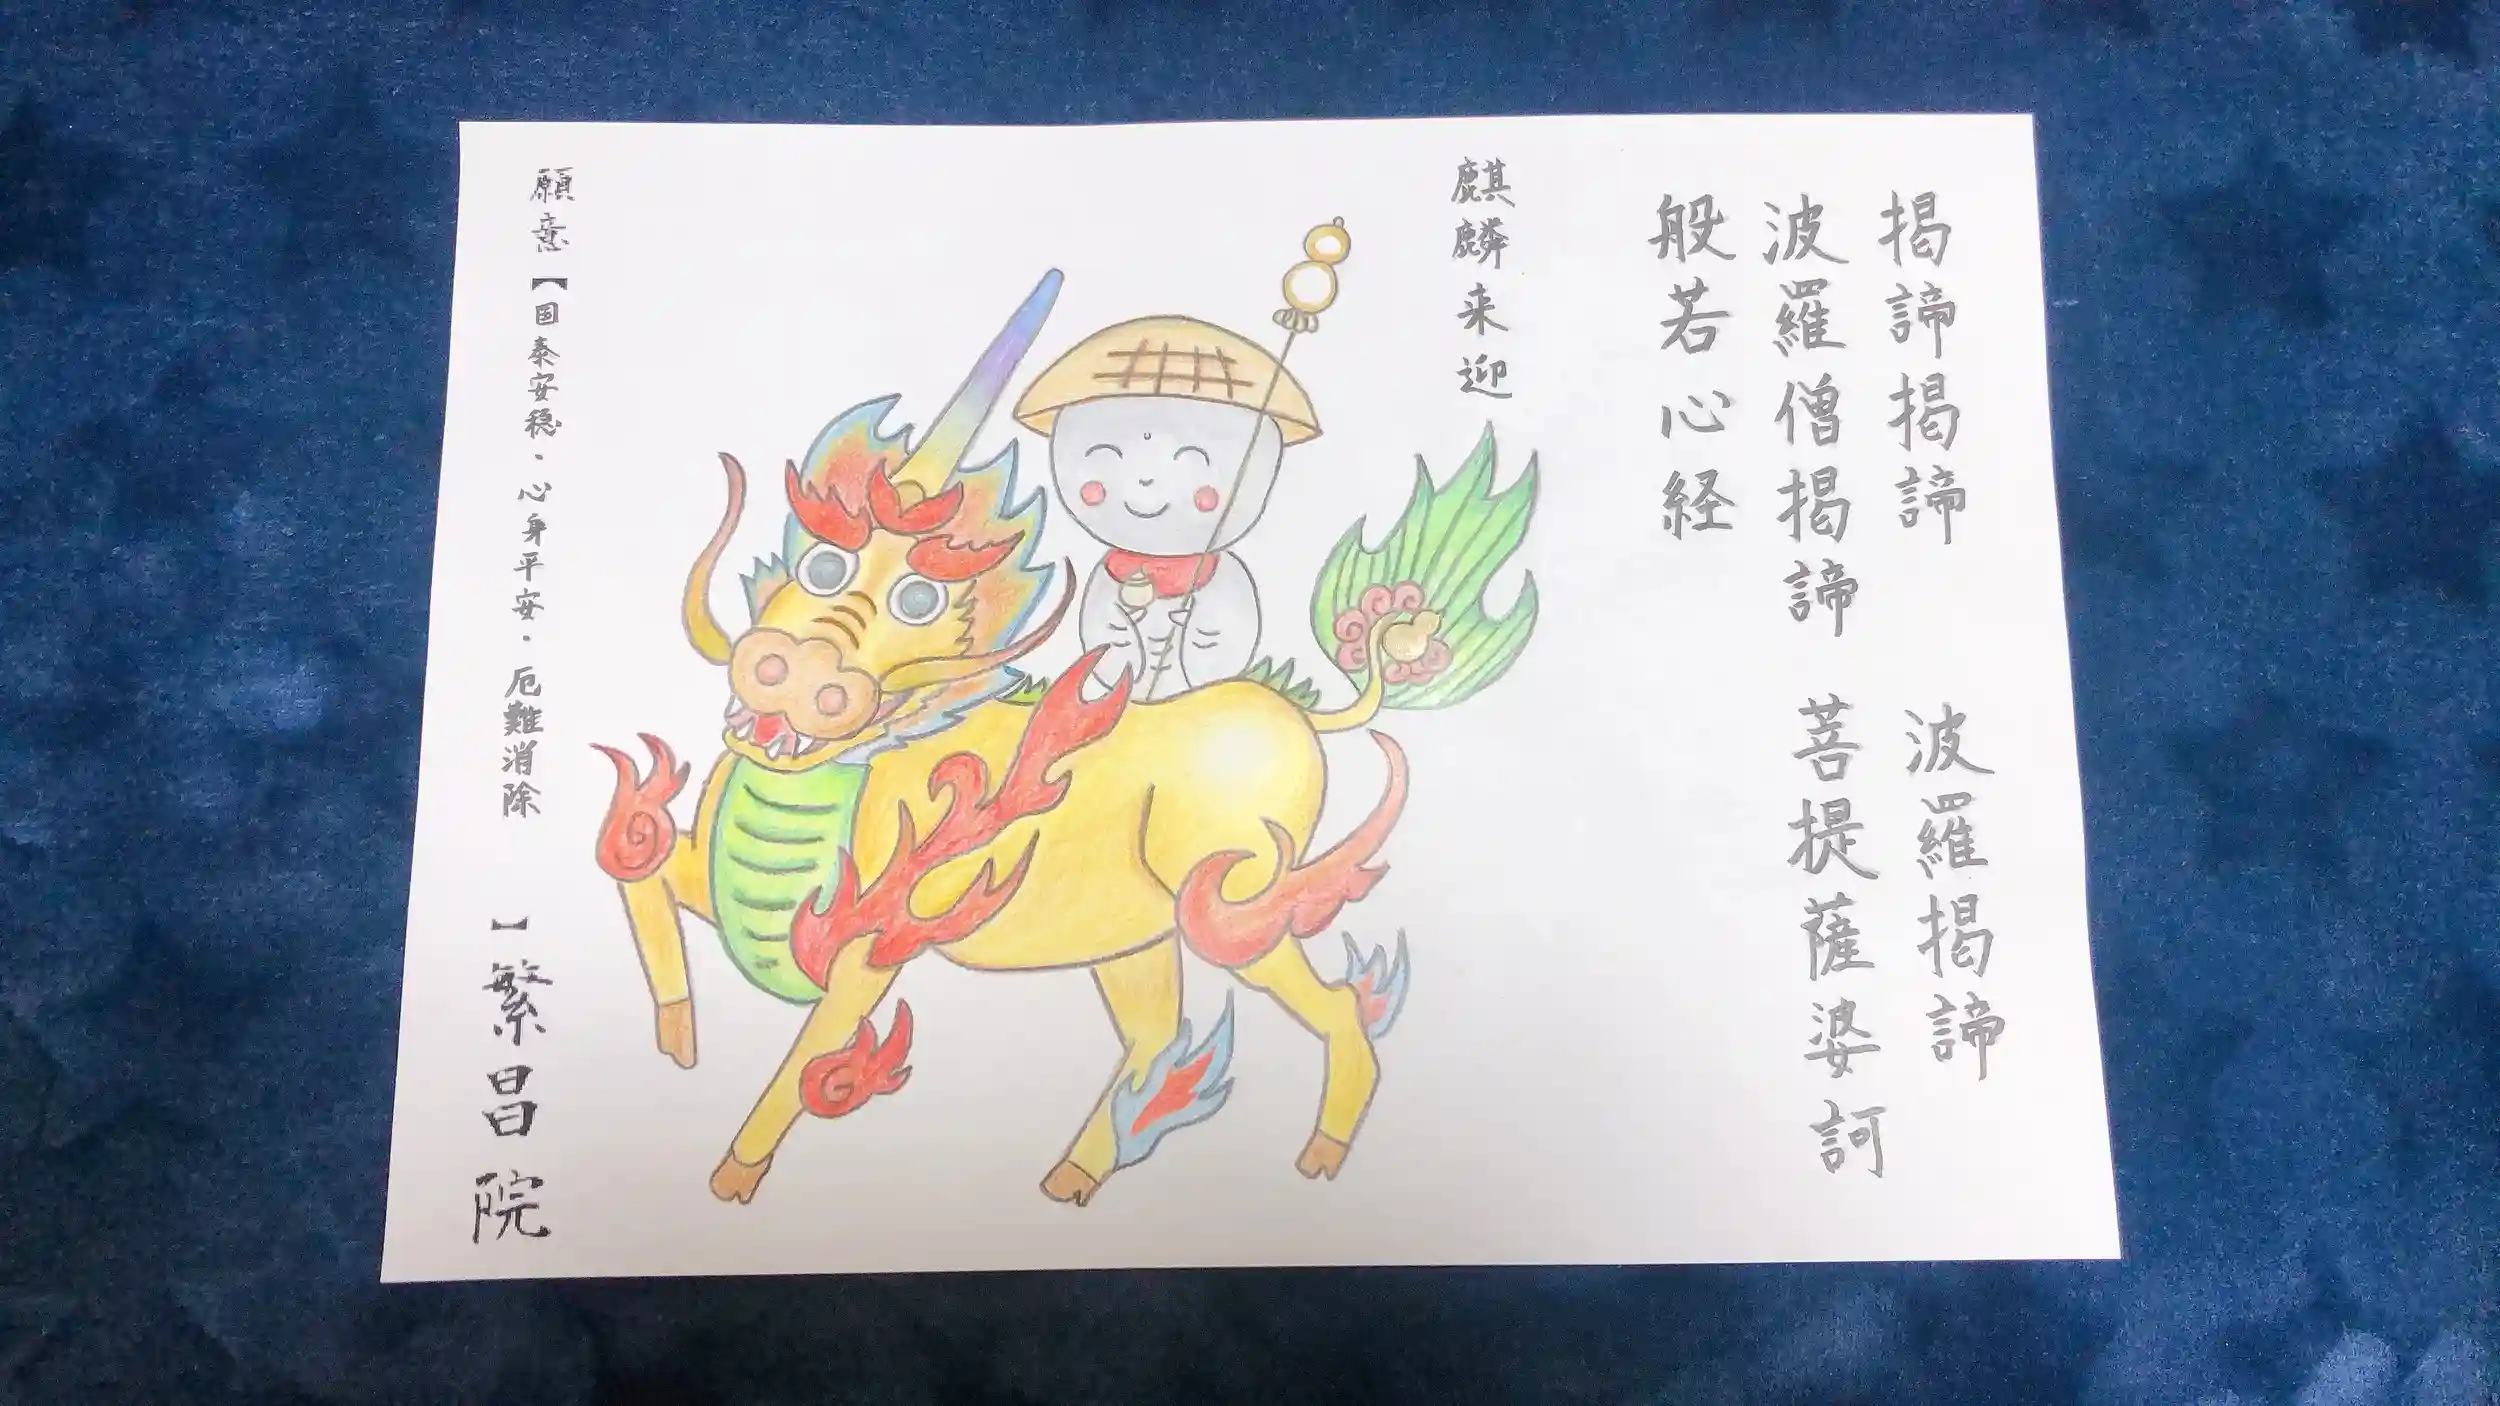 掲諦掲諦　波羅掲諦
波羅僧掲諦　菩提薩婆訶
般若心経
麒麟来迎
願意【国泰安穏・心身平安・厄難消除　】繁昌院